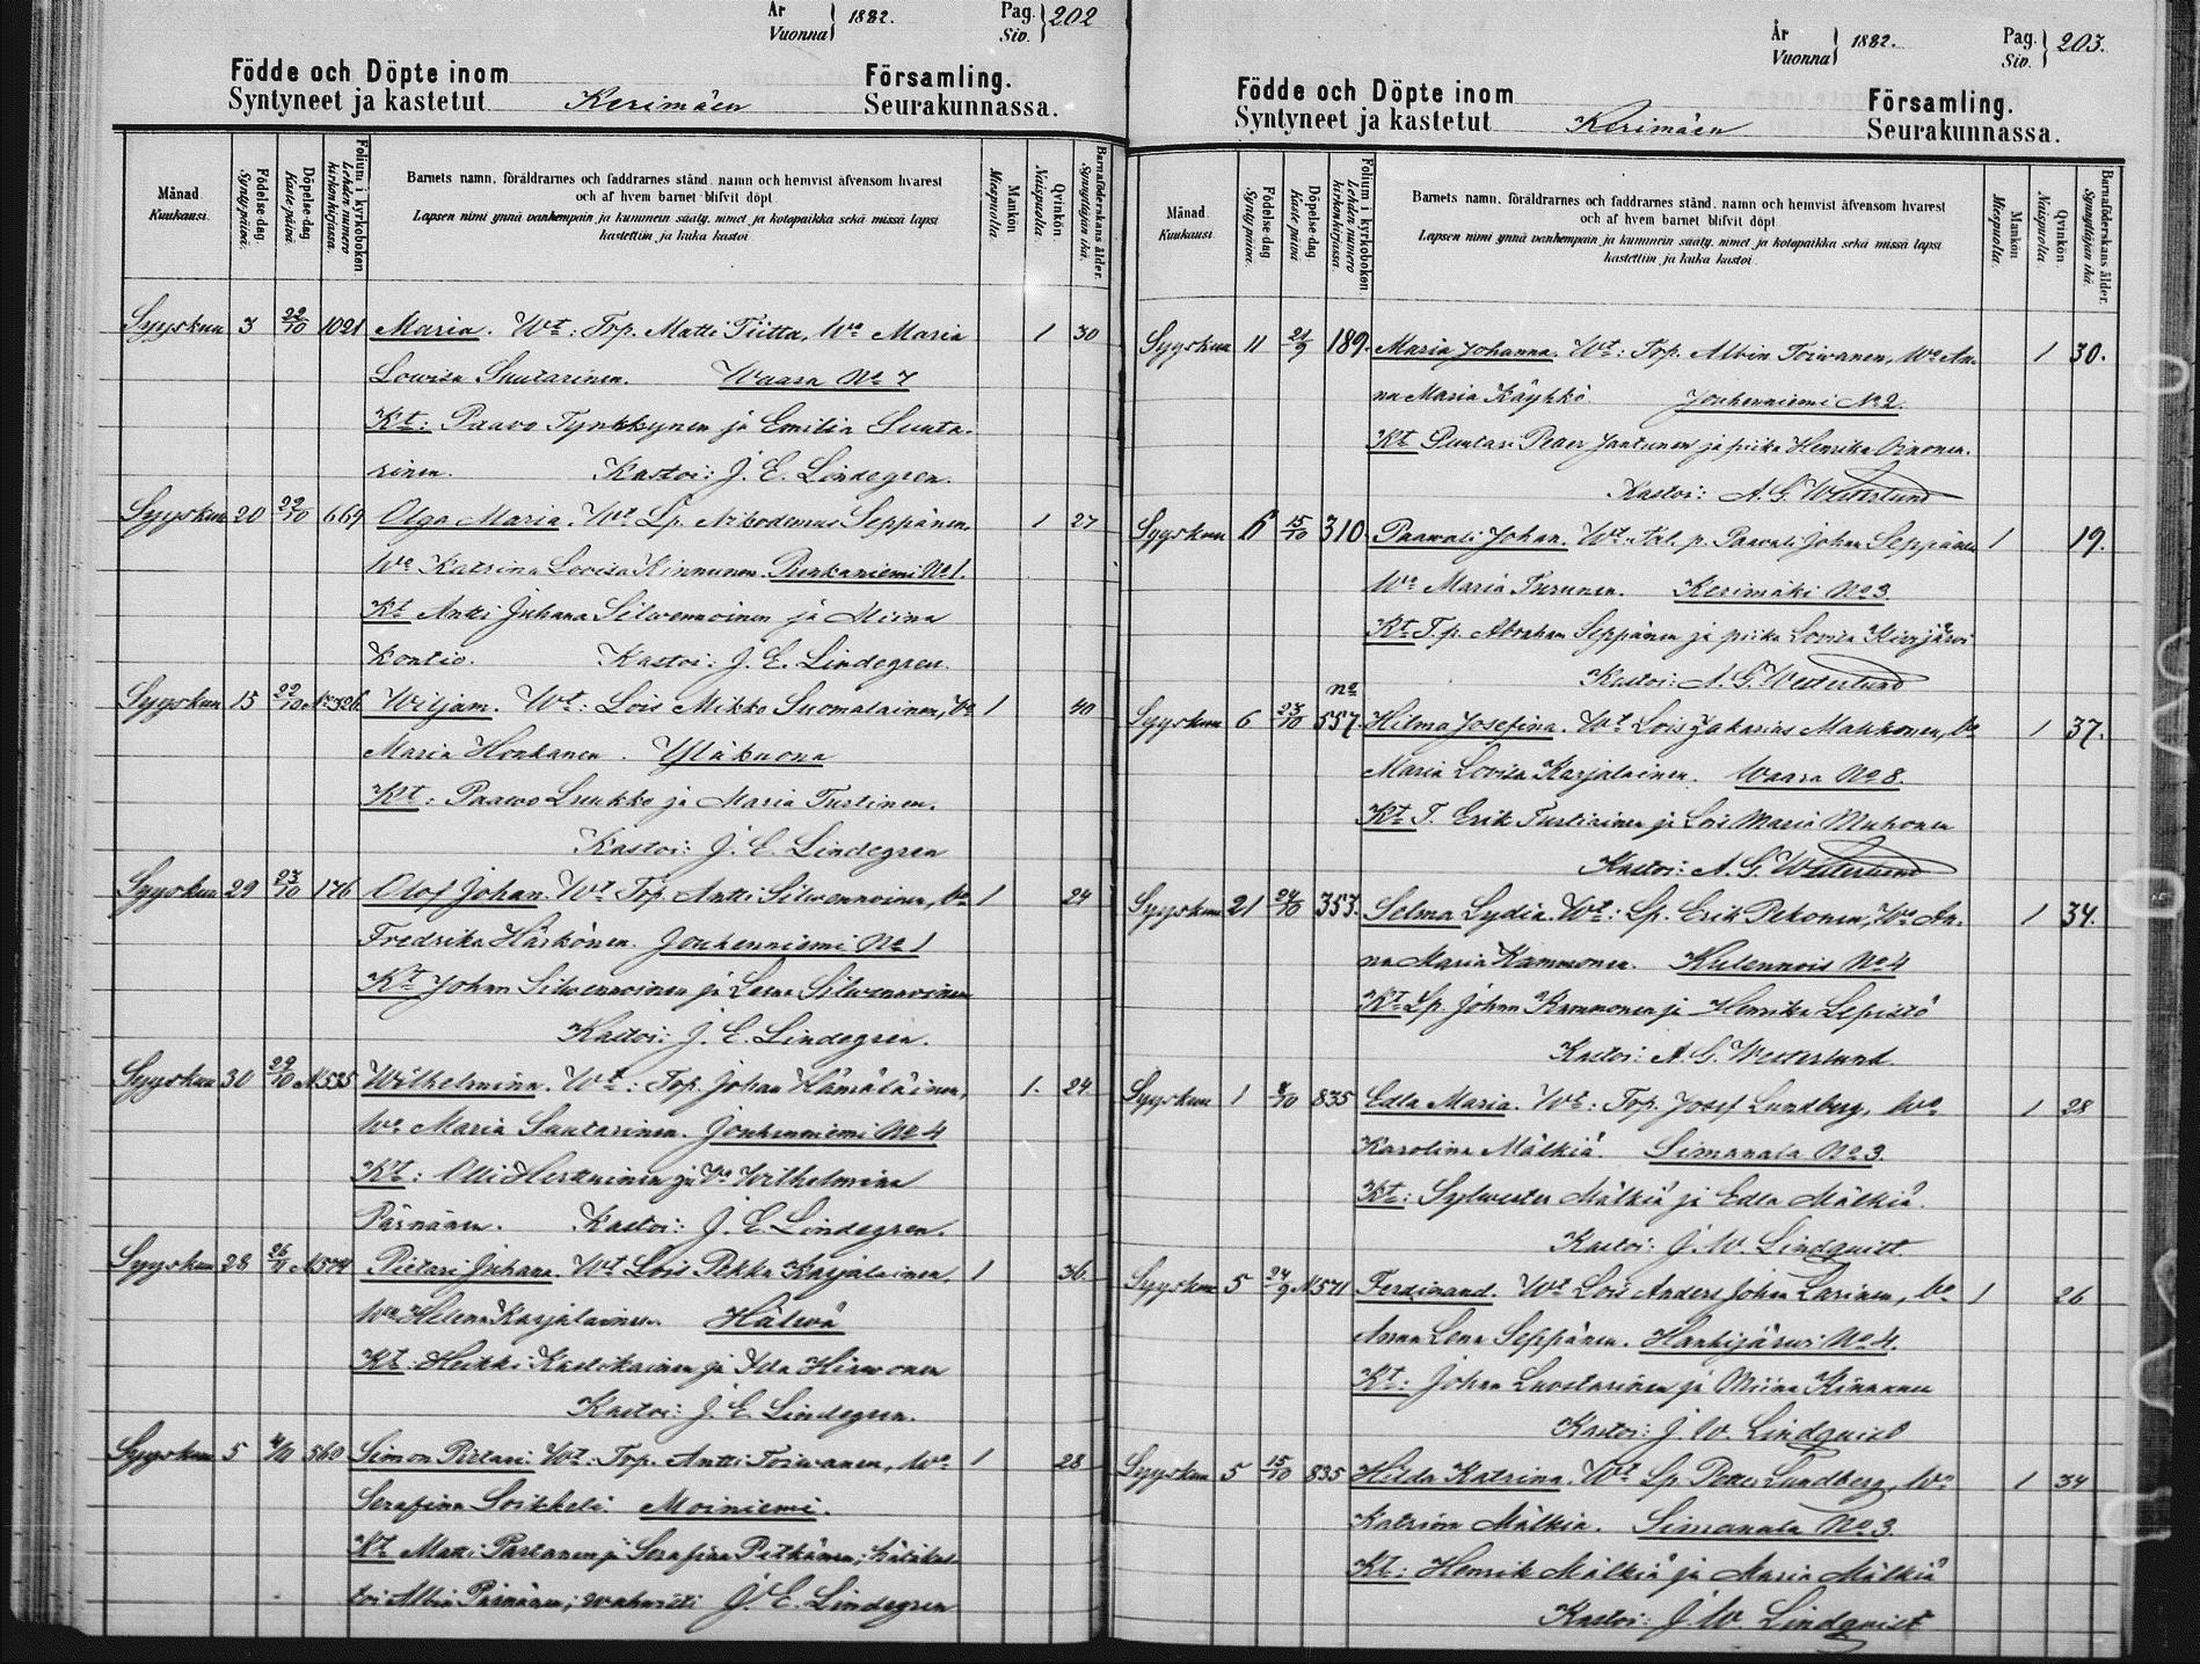 År 1882. Pag. 202
Vuonna Siv.
Födde och Döpte inom Församling.
Syntyneet ja kastetut Kerimäen Seurakunnassa.
Månad Kuukausi. Födelse-dag Synty-päivä. Döpelse-dag Kaste-päivä Folium i kyrkoboken Lehden numero kirkonkirjassa.
Barnets namn, föräldrarnes och faddrarnes stånd, namn och hemvist äfvensom hvarest
och af hvem barnet blifvit döpt
Lapsen nimi ynnä vanhempain ja kummein sääty, nimet ja kotopaikka sekä missä lapsi
kastettiin ja kuka kastoi
Mankön Miespuolia. Qvinkön Naispuolia. Barnaföderskans ålder. Synnyttäjän ikä.
Syyskuu 3 22/10 1021 Maria. Wt: Torp. Matti Tiitta, Wo Maria 1 30
Lowisa Suutarinen. Waara No 7
Kt: Paavo Tynkkynen ja Emilia Suuta-
rinen. Kastoi: J. E. Lindegren.
Syyskuu 20 22/10 669 Olga Maria. Wt Lp. Nikodemus Seppänen, 1 27
Wo Katrina Lovisa Kinnunen. Punkaniemi No 1.
Kt Antti Juhana Silwennoinen ja Miina
Kontio. Kastoi: J. E. Lindegren.
Syyskuu 15 22/10 No 326 Wiljam. Wt: Lois Mikko Suomalainen, Wo 1 40
Maria Honkanen. Yläkuona
Kt: Paawo Luukko ja Maria Turtinen.
Kastoi: J. E. Lindegren
Syyskuu 29 23/10 176 Olof Johan. Wt Torp. Antti Silwennoinen, Wo 1 24
Fredrika Härkönen. Jouhenniemi No 1
Kt Johan Silwennoinen ja Leena Silwennoinen
Kastoi: J. E. Lindegren.
Syyskuu 30 29/10 N 535 Wilhelmina. Wt: Torp. Johan Hämäläinen, 1. 24.
Wo Maria Suutarinen. Jouhenniemi No 4
Kt: Olli Herttuinen ja Wo Wilhelmina
Pärnänen. Kastoi: J. E. Lindegren.
Syyskuu 28 26/11 N 574 Pietari Juhana. Wt Lois Pekka Karjalainen, 1 36.
Wo Helena Karjalainen. Hälvä
Kt: Heikki Kaslokainen ja Ida Hirwonen
Kastoi: J. E. Lindegren.
Syyskuu 5 4/11 560 Simon Pietari: Wt: Torp. Antti Toiwanen, Wo 1 28
Serafina Loikkeli. Moiniemi.
Kt Matti Partanen ja Serafina Pitkänen; hätäkas-
toi Albin Pärnänen; wahwisti J. E. Lindegren
År 1882. Pag. 203.
Vuonna Siv.
Födde och Döpte inom Församling.
Syntyneet ja kastetut Kerimäen Seurakunnassa.
Månad Kuukausi. Födelse-dag Synty-päivä. Döpelse-dag Kaste-päivä Folium i kyrkoboken Lehden numero kirkonkirjassa.
Barnets namn, föräldrarnes och faddrarnes stånd, namn och hemvist äfvensom hvarest
och af hvem barnet blifvit döpt.
Lapsen nimi ynnä vanhempain ja kummein sääty, nimet ja kotopaikka sekä missä lapsi
kastettiin ja kuka kastoi.
Mankön Miespuolia. Qvinkön. Naispuolia. Barnaföderskans ålder. Synnyttäjän ikä.
Syyskuu 11 21/9 189. Maria Johanna. Wt: Torp. Albin Toiwanen, Wo An- 1 30.
na Maria Käyhkö. Jouhenniemi No 2.
Kt Puutar. Peter Jantunen ja piika Henrika Oinonen.
Kastoi: A. G. Westerlund
Syyskuu 6 15/10 310. Paawali Johan. Wt. Tal. p. Paawali Johan Seppänen 1 19.
Wo Maria Turunen. Kerimäki No 3.
Kt T. p. Abraham Seppänen ja piika Lovisa Kierjärvi
Kastoi: A. G. Westerlund
Syyskuu 6 23/10 No 557. Hilma Josefina. Wt Lois Zakarias Makkonen, Wo 1 37.
Maria Lovisa Karjalainen. Waara No 8.
Kt T. Erik Turtiainen ja Lois Maria Muhonen
Kastoi: A. G. Westerlund
Syyskuu 21 24/10 353. Selma Lydia. Wt: Lp. Erik Pekonen, Wo An- 1 34.
na Maria Kammonen. Kulennois No 4
Kt Lp. Johan Kammonen ja Henrika Lepistö
Kastoi: A. G. Westerlund.
Syyskuu 1 8/10 835 Edla Maria. Wt: Torp. Josef Lundberg, Wo 1 28
Karolina Mälkiä. Simanala No 3.
Kt: Sylwester Mälkiä ja Edla Mälkiä.
Kastoi: J. W. Lindquist.
Syyskuu 5 24/9 N 571 Ferdinand. Wt Lois Anders Johan Larinen, Wo 1 26
Anna Lena Seppänen. Hankijärwi No 4.
Kt: Johan Luostarinen ja Miina Kinnunen
Kastoi: J. W. Lindquist
Syyskuu 5 15/10 835 Hilda Katrina. Wt Lp. Peter Lundberg, Wo 1 34
Katrina Mälkiä. Simanala No 3.
Kt: Henrik Mälkiä ja Maria Mälkiä
Kastoi: J. W. Lindquist